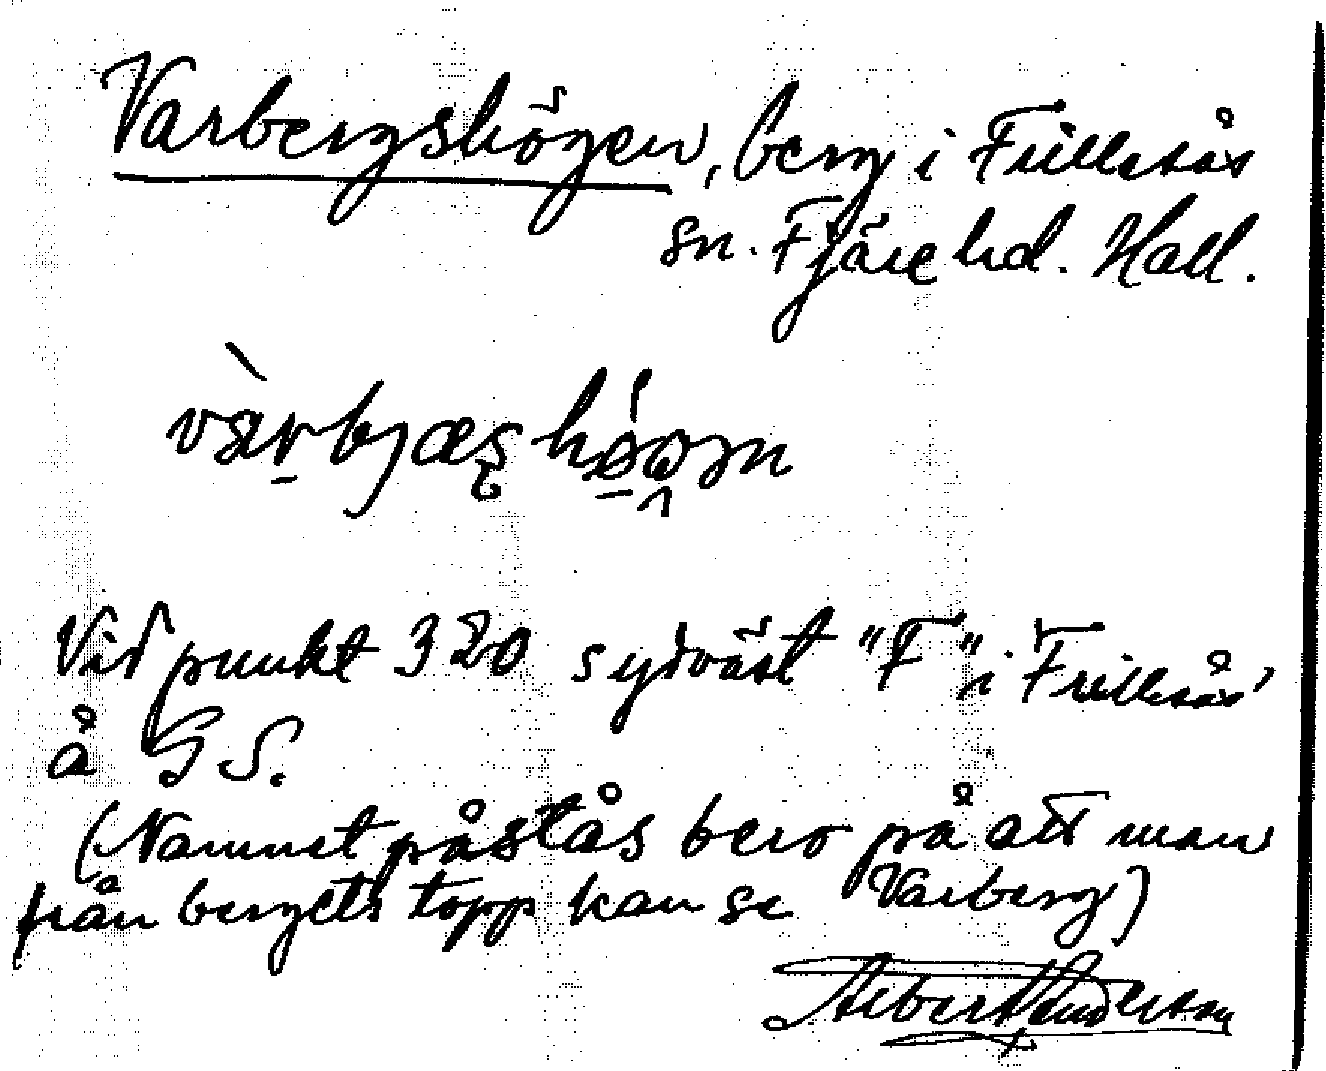 Varbergshögen, berg i Frillesås
sn. Fjäre hd. Hall.
Vid punkt 320 sydväst "F" i Frillesås
å G S.
(Namnet påstås bero på att man
från bergets topp kan se Varberg)
Albert Anderson